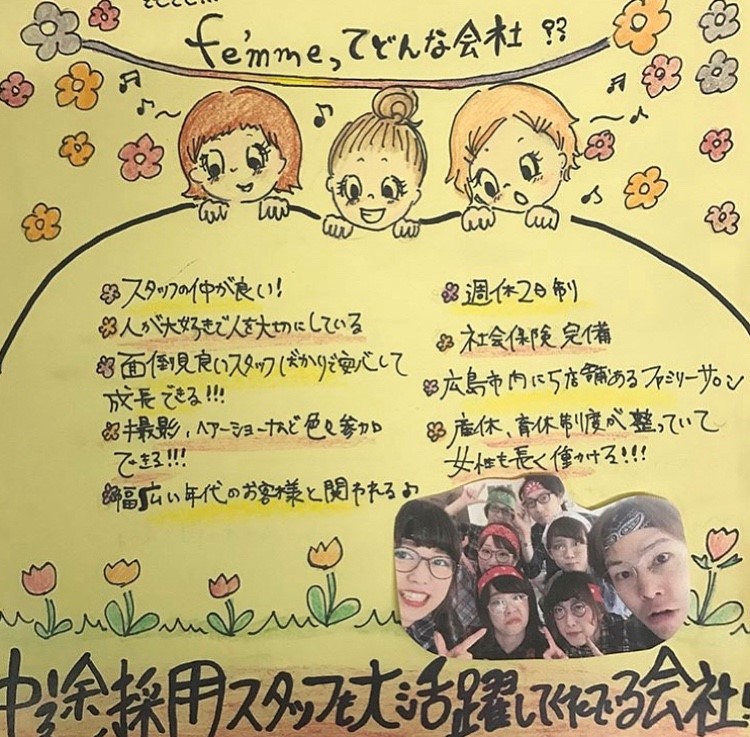 fe'mmeってどんな会社!?
スタッフの仲が良い!
人が大好きで人を大切にしている
面倒見良いスタッフばかりで安心して
成長できる!!!
撮影、ヘアーショーなど色々参加
できる!!!
幅広い年代のお客様と関われる♪
週休2日制
社会保険完備
広島市内に5店舗あるファミリーサロン
産休、育休制度が整っていて
女性も長く働ける!!!
中途採用スタッフも大活躍してくれてる会社